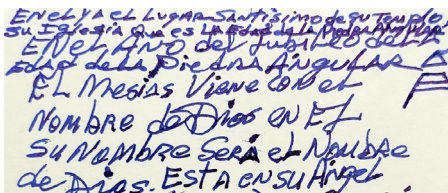 EN EL Y A EL LUGAR SANTíSimo de su Templo
Su Iglesia que es LA EdAd de LA PiedRA ANgulAR
EN EL AÑO del Jubileo de LA
EdAd de LA PiedRA ANGULAR
EL Mesias Viene CON el
NOMbRe de Dios en EL
Su NOMbRe SeRá el NOMbRe
de Dios. ESTA en su ÁNgel